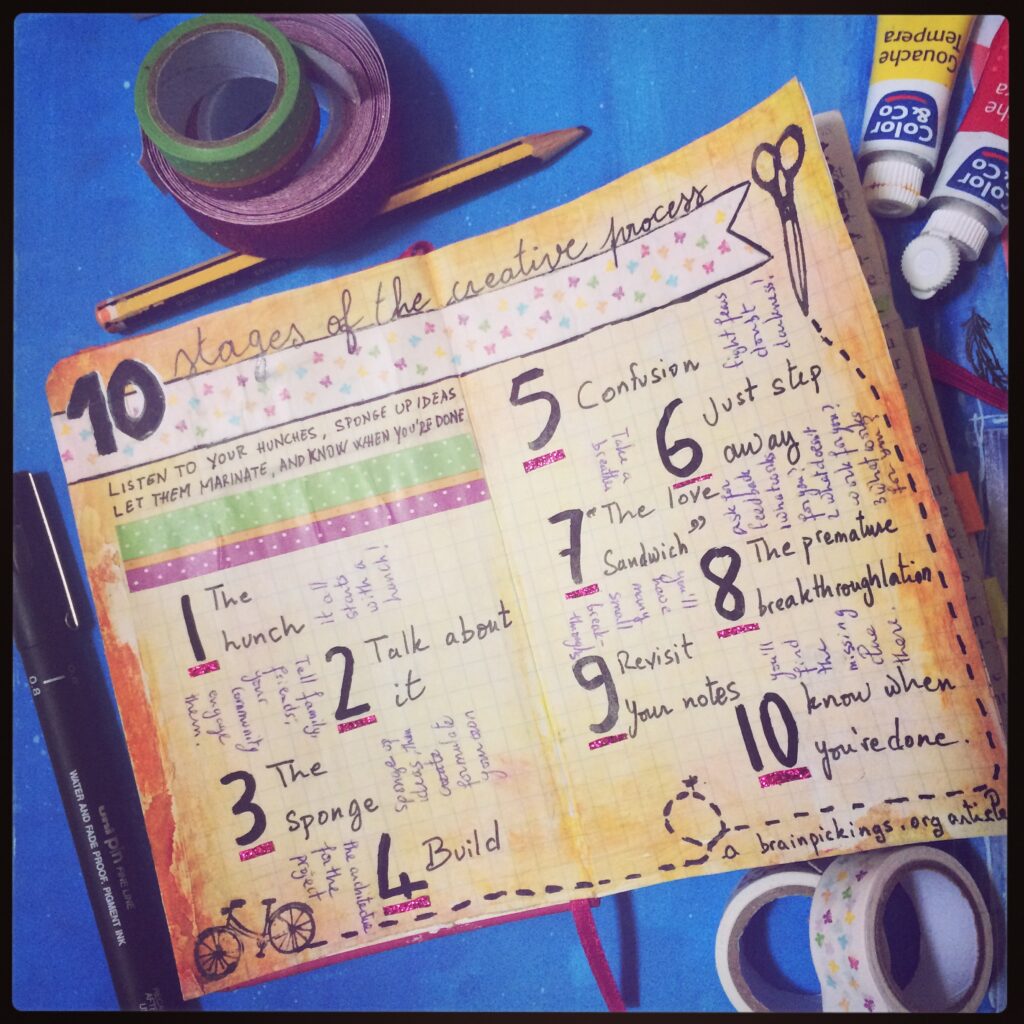 10 stages of the creative process
LISTEN TO YOUR HUNCHES, SPONGE UP IDEAS
LET THEM MARINATE, AND KNOW WHEN YOU'RE DONE
1 The
hunch
it all
starts
with a
hunch!
2 Talk about
it
Tell family,
friends,
your
community
engage
them.
3 The
sponge
Sponge up
ideas, then
create
formulate
your own
4 Build
the architecture
for the
project
5 Confusion
fight fears
doubt
darkness!
6 Just step
away
Take a
breath
7 "The love
Sandwich"
ask for
feedback
1 what works
for you?
2 what doesn't
work for you?
3 what works
for you?
8 The premature
breakthroughlation
you'll
have
many
small
break
throughs
9 Revisit
your notes
you'll
find
the
missing
clue
there.
10 know when
you're done.
a brainpickings.org article
Color
& Co
Gouache
Tempera
Color
& Co
0.8
uni pin FINE LINE
WATER AND FADE PROOF, PIGMENT INK